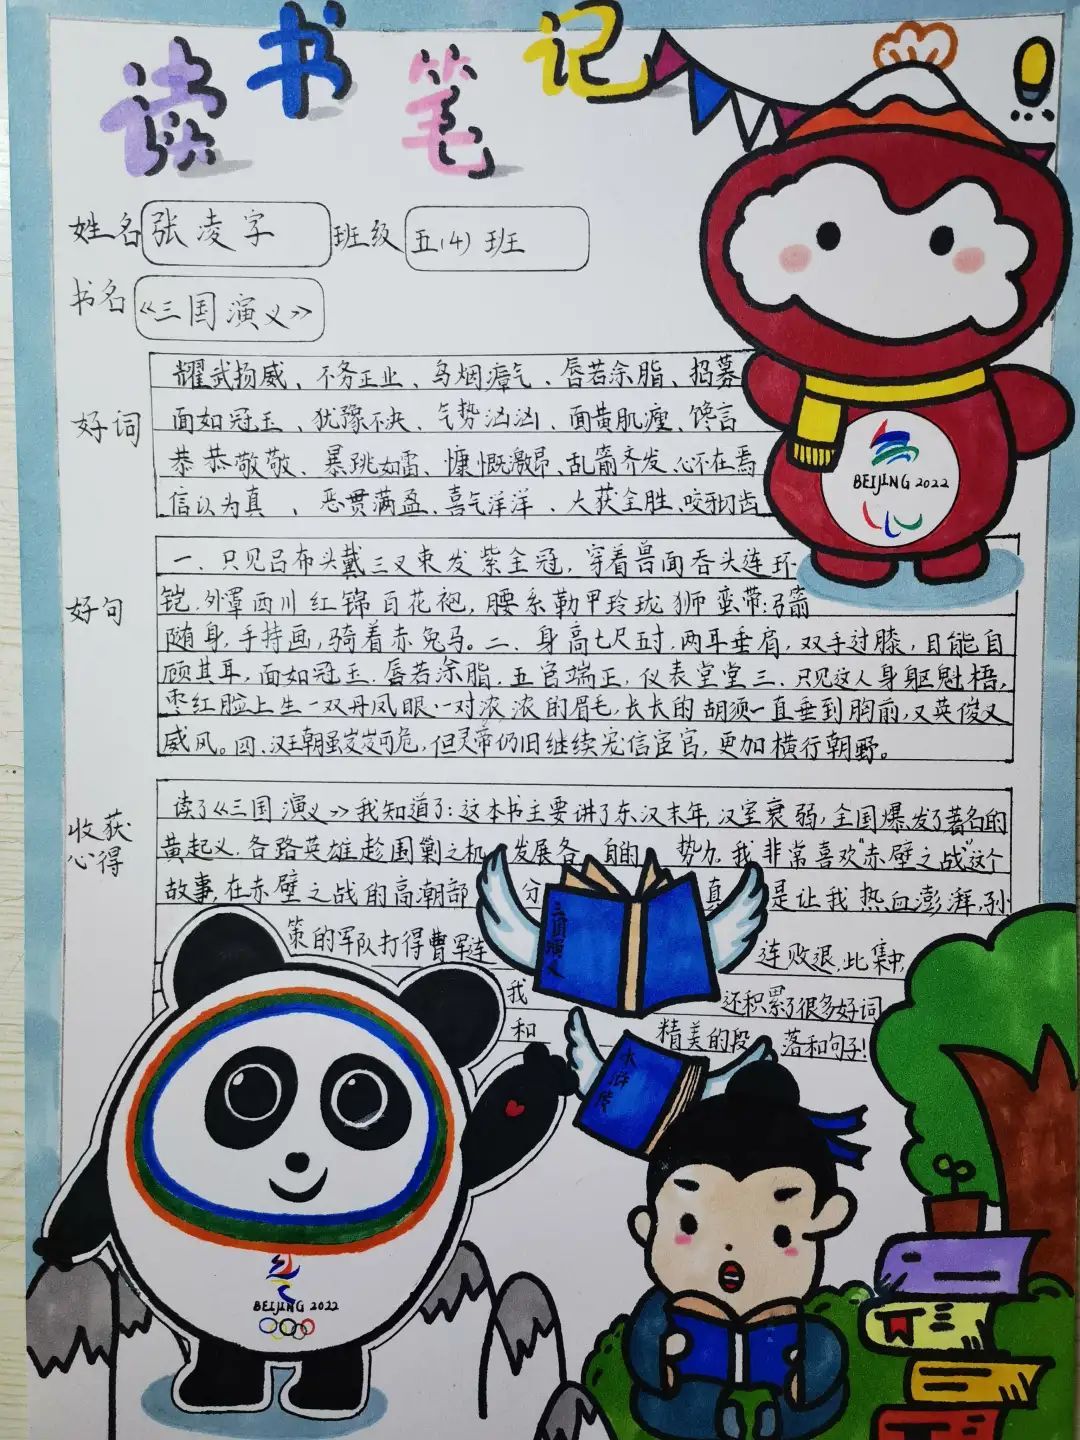 读书笔记
姓名 张凌字 班级 五(4)班
书名 《三国演义》
好词
耀武扬威、不务正业、乌烟瘴气、唇若涂脂、招募
面如冠玉、犹豫不决、气势汹汹、面黄肌瘦、馋言
恭恭敬敬、暴跳如雷、慷慨激昂、乱箭齐发、心不在焉
信认为真、恶贯满盈、喜气洋洋、大获全胜、咬牙切齿
好句
一、只见吕布头戴三叉束发紫全冠，穿着兽面吞头连环
铠，外罩西川红锦百花袍，腰系勒甲玲珑狮蛮带；弓箭
随身，手持画，骑着赤兔马。二、身高七尺五寸，两耳垂肩，双手过膝，目能自
顾其耳，面如冠玉，唇若涂脂，五官端正，仪表堂堂三、只见这人身躯魁梧，
枣红脸上生一双丹凤眼，一对浓浓的眉毛，长长的胡须一直垂到胸前，又英俊又
威风。四、汉王朝虽岌岌可危，但灵帝仍旧继续宠信宦官，更加横行朝野。
收获
心得
读了《三国演义》我知道了：这本书主要讲了东汉末年，汉室衰弱，全国爆发了著名的
黄起义，各路英雄趁围剿之机，发展各自的势力，我非常喜欢“赤壁之战”这个
故事，在赤壁之战的高潮部分 真是让我热血澎湃，孙
策的军队打得曹军连连败退，此集中，
我还积累了很多好词
和精美的段落和句子！
三国演义
水浒传
BEIJING 2022
BEIJING 2022